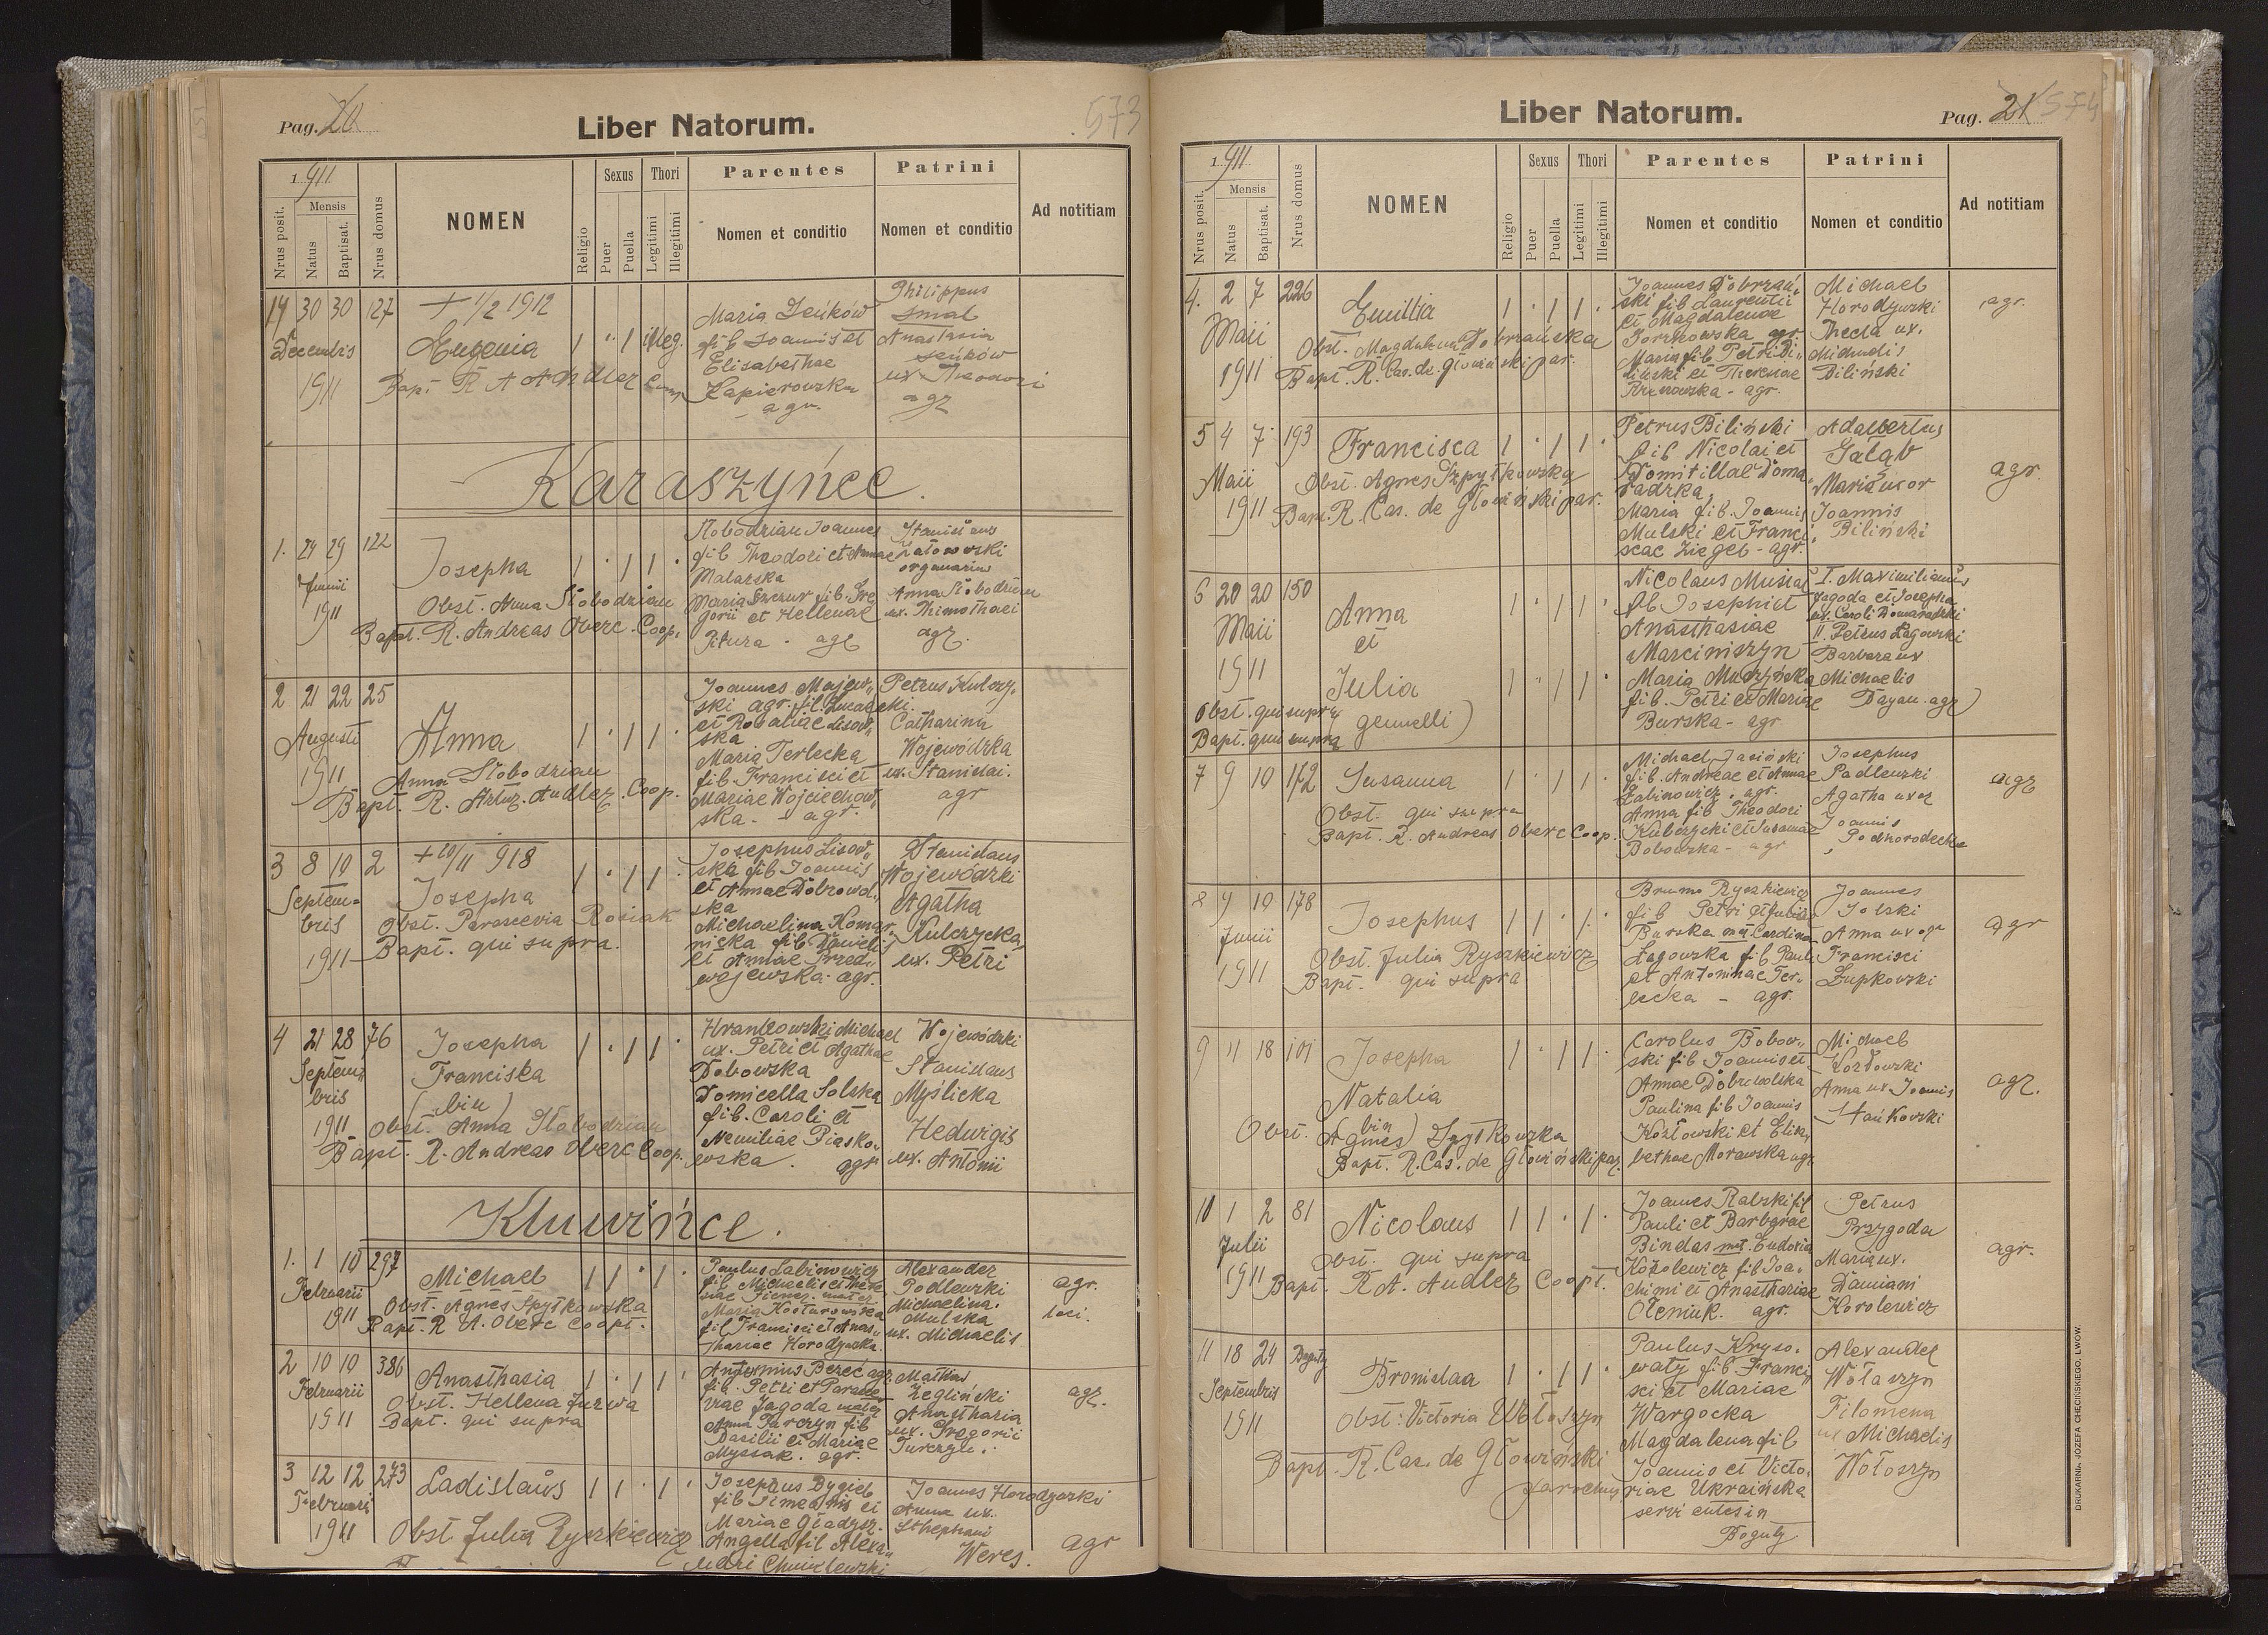 Pag. 20
Liber Natorum.
573
1911
Nrus posit.
Mensis
Natus
Baptisat.
Nrus domus
NOMEN
Religio
Sexus
Puer
Puella
Thori
Legitimi
Illegitimi
Parentes
Nomen et conditio
Patrini
Nomen et conditio
Ad notitiam
14 30 30 127
Decembris
1911
+ 1/2 1912
Eugenia
illeg.
Maria
fil. Joannis et
Elisabethae
agr.
Philippus
Smal
Anastasia
ux. Theodori
agr
Karaszyńce.
1. 24 29 122
Junii
1911
Josepha
Obst. Anna Słobodzian
Bapt. R. Andreas Oberc Coop.
Słobodzian Joannes
fil. Theodori et Annae
Malarska
Maria Szczur fil. Gre
gorii et Hellenae
Pitura - agr
Stanislaus
organarius
Anna Słobodzian
ux. Thimothaei
agr.
2 21 22 25
Augusti
1911
Anna
Anna Słobodzian
Bapt. R. Artur. Audler. Coop.
Joannes Majew„
ski agr. fil. Lucae
et Rosaliae Lisow„
ska
Maria Terlecka
fil. Francisci et
Mariae Wojciechow„
ska - agr.
Petrus Kulczy„
cki.
Catharina
Wojewódzka
ux. Stanislai.
agr
3 8 10 2
Septem=
bris
1911
+ 20/11 918
Josepha
Obst. Parascevia Rosiak
Bapt. qui supra.
Josephus Lisow„
ska fil. Joannis
et Annae Dobrowol„
ska
Michaelina Komar„
nicka fil. Danielis
et Annae Przed„
wojewska - agr.
Stanislaus
Wojewódzki
Agatha
Kulczycka
ux. Petri
4 21 28 76
Septem„
bris
1911
Josepha
Franciska
(bin)
Obst. Anna Słobodzian
Bapt. R. Andreas Oberc Coop.
Hrankowski Michael
ux. Petri et Agathae
Dobowska
Domicella Solska
fil. Caroli et
Aemiliae Piasko„
wska. agr
Wojewódzki
Stanislaus
Myślicka
Hedwigis
ux. Antonii
Kluwińce.
1. 1 10 297
Februarii
1911
Michael
Obst. Agnes Szpytkowska
Bapt. R. A. Oberc Coopt.
Paulus Labinowicz
fil. Michaelis et There
siae
Maria
fil Francisci et Anas„
thasiae Horodyńska.
Alexander
Podlewski
Michaelina
Mulska
ux. Michaelis
agr.
loci.
2 10 10 386
Februarii
1911
Anasthasia
Obst. Hellena Furwa
Bapt. qui supra
Antonius Bereć agr.
fil. Petri et Parasce
viae Jagoda mater
Anna Parczyn fil
Basilii et Mariae
Myssak. agr.
Mathias
Żegliński
Anasthasia
ux. Gregorii
agr.
3 12 12 273
Februarii
1911
Ladislaus
Obst Julia Ryszkiewicz
Josephus Dygiel
fil Simeonis et
Mariae Gładysz.
Angella fil Alexa„
ndri Chmielewski
Joannes Horodyński
Anna ux.
Sthephani
Weres.
agr
Liber Natorum.
Pag. 21
574
1911
Nrus posit.
Mensis
Natus
Baptisat.
Nrus domus
NOMEN
Religio
Sexus
Puer
Puella
Thori
Legitimi
Illegitimi
Parentes
Nomen et conditio
Patrini
Nomen et conditio
Ad notitiam
4. 2 7 226
Maii
1911
Emillia
Obst. Magdalena Dobrzańska
Bapt. R. Cas. de Głowiński par.
Joannes Dobrzań„
ski fil Laurentii
et Magdalenae
agr.
Maria fil Petri Bi„
liński et Theresae
agr.
Michael
Horodyński
Thecla ux.
Michaelis
Biliński
agr.
5 4 7 193
Maii
1911
Francisca
Obst. Agnes Szpytkowska
Bapt. R. Cas. de Głowiński par.
Petrus Biliński
fil Nicolai et
Domitillae Doma„
radzka,
Maria fil. Joannis
Mulski et Franci„
scae Ziegel - agr.
Adalbertus
Gałąb
Maria uxor
Joannis
Biliński
agr
6 20 20 150
Maii
1911
Anna
et
Julia
(gemelli)
Obst. qui supra
Bapt. qui supra
Nicolaus Musiał
fil Josephi et
Anasthasiae
Marciniszyn
Maria Mudryńska
fil. Petri et Mariae
Burska - agr
I. Maximilianus
Jagoda et Josepha
ux. Caroli Domaradzki
II. Petrus Łagowski
Barbara ux
Michaelis
Dayan agr)
7 9 10 172
Susanna
Obst. qui supra
Bapt. R. Andreas Oberc Coop.
Michael Jasiński
fil. Andreae et Annae
Łabinowicz. agr.
Anna fil Theodori
Kulczycki et Susannae
Bobowska - agr
Josephus
Padlewski
Agatha uxor
Joannis
Podhorodecki
agr
8 9 10 178
Junii
1911
Josephus
Obst. Julia Ryszkiewicz
Bapt. qui supra
Bruno Ryszkiewicz
fil Petri et Julia
Burska mat. Carolina
Łagowska fil Pauli
et Antoninae Ter„
lecka - agr.
Joannes
Solski
Anna uxor
Francisci
Łupkowski
agr
9 11 18 101
Josepha
Natalia
(bin)
Obst. Agnes Szpytkowska
Bapt. R. Cas. de Głowiński par.
Carolus Bobow„
ski fil Joannis et
Annae Dobrowolska
Paulina fil Joannis
Kozłowski et Eliza„
bethae Morawska agr
Michael
Kozłowski
Anna ux. Joannis
Hańkowski
agr.
10 1 2 81
Julii
1911
Nicolaus
Obst. qui supra
Bapt. R. A. Audler Coopt.
Joannes Ralski fil
Pauli et Barbarae
Bindas mat. Eudoxia
Korolewicz fil Joa„
chimi et Anasthasiae
Oleniuk. agr.
Petrus
Przygoda
Maria ux.
Damiani
Korolewicz
agr.
11 18 24 Boguty
Septembris
1911
Bronislaa
Obst: Victoria Wołoszyn
Bapt. R. Cas. de Głowiński
parochus
Paulus Kryso„
waty fil Franci„
sci et Mariae
Wargocka
Magdalena fil
Joannis et Victo„
riae Ukraińska
servientes in
Boguty.
Alexander
Wołoszyn
Filomena
ux Michaelis
Wołoszyn
DRUKARNIA JÓZEFA CHĘCIŃSKIEGO, LWÓW.